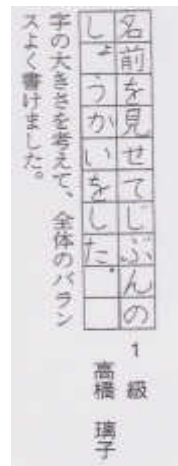 名前を見せてじぶんの
しょうかいをした。
1級 高橋 璃子
字の大きさを考えて、全体のバラン
スよく書けました。